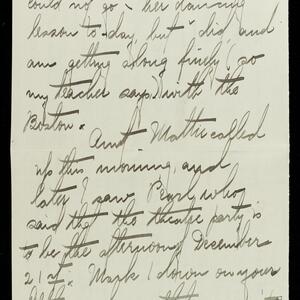 could not go - her dancing
lesson to-day, but I did, and
am getting along finely (so
my teacher says) with the
Boston.
Aunt Mattie called
up this morning, and
later I saw Pearl who
said that the theatre party is
to be the afternoon, December
21st. Mark 1 down on your